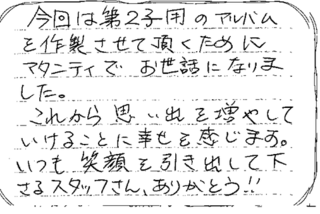 今回は第2子用のアルバム
を作製させて頂くために
マタニティでお世話になりま
した。
これから思い出を増やして
いけることに幸せを感じます。
いつも笑顔を引き出して下
さるスタッフさん、ありがとう!!